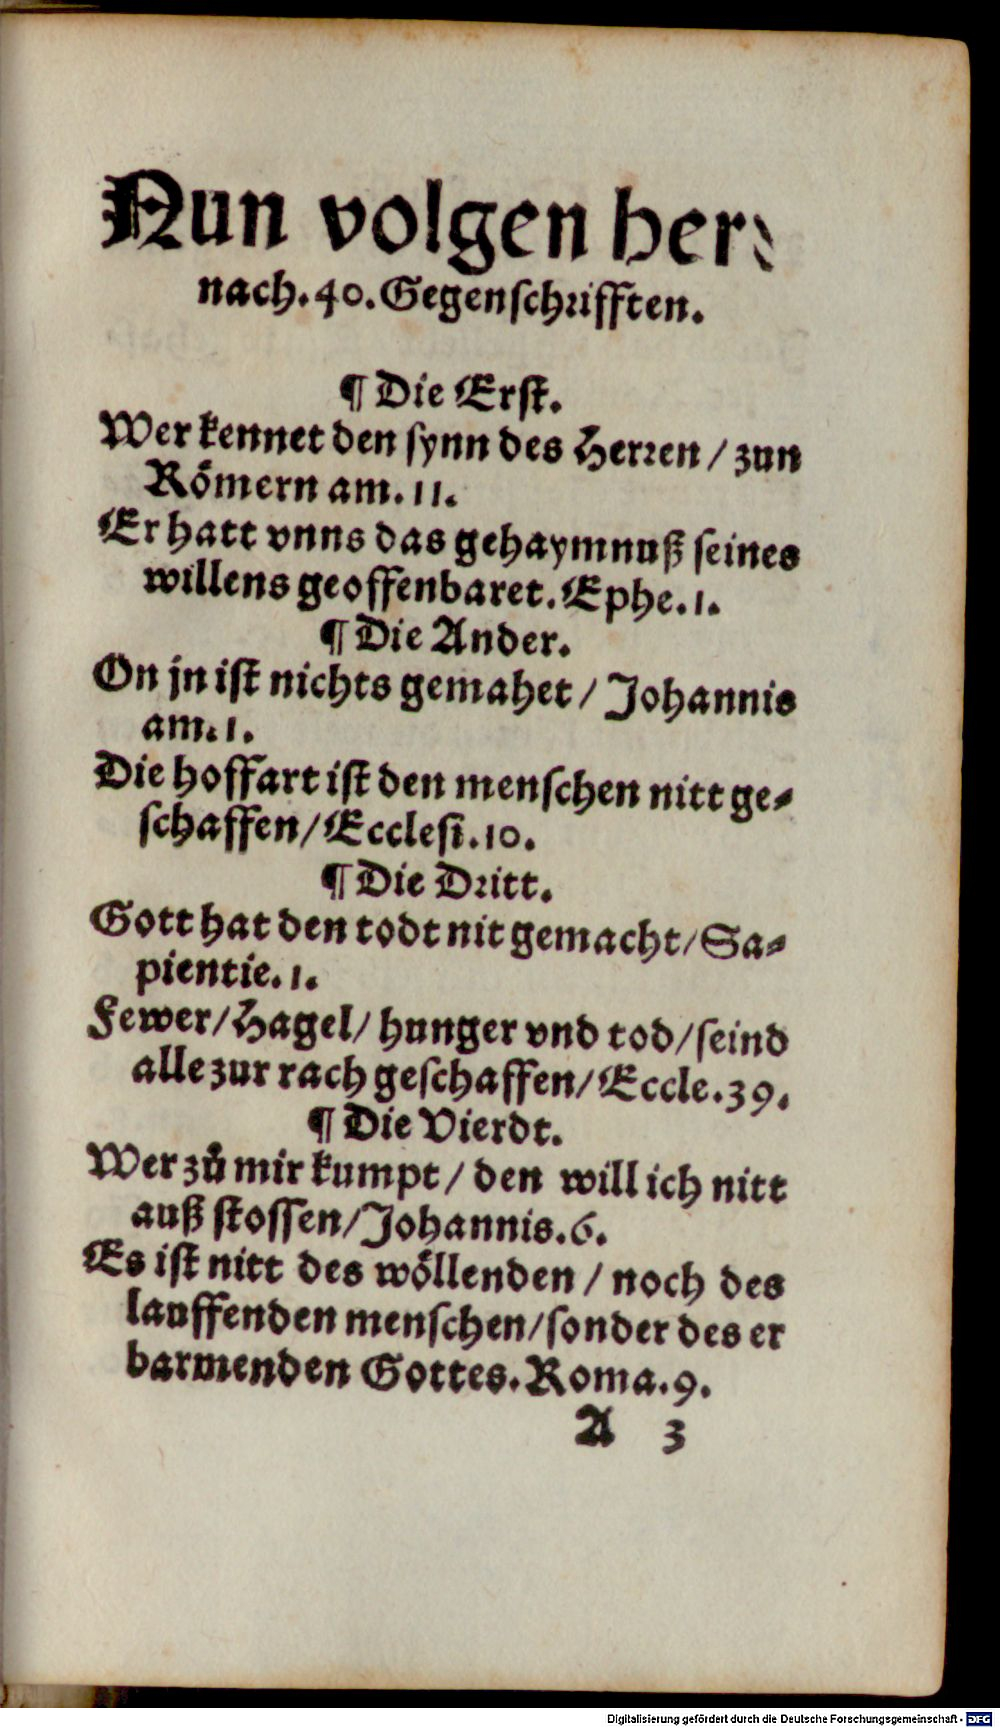 Nun volgen her⸗
nach. 40. Gegenschrifften.
¶ Die Erst.
Wer kennet den synn des Herren / zun
Rōmern am. 11.
Er hatt vnns das gehaymnuß seines
willens geoffenbaret. Ephe. 1.
¶ Die Ander.
On jn ist nichts gemahet / Johannis
am. 1.
Die hoffart ist den menschen nitt ge⸗
schaffen / Ecclesi. 10.
¶ Die Dritt.
Gott hat den todt nit gemacht / Sa⸗
pientie. 1.
Fewer / Hagel / hunger vnd tod / seind
alle zur rach geschaffen / Eccle. 39.
¶ Die Vierdt.
Wer zů mir kumpt / den will ich nitt
auß stossen / Johannis. 6.
Es ist nitt des wöllenden / noch des
lauffenden menschen / sonder des er
barmenden Gottes. Roma. 9.
A 3
Digitalisierung gefördert durch die Deutsche Forschungsgemeinschaft - DFG